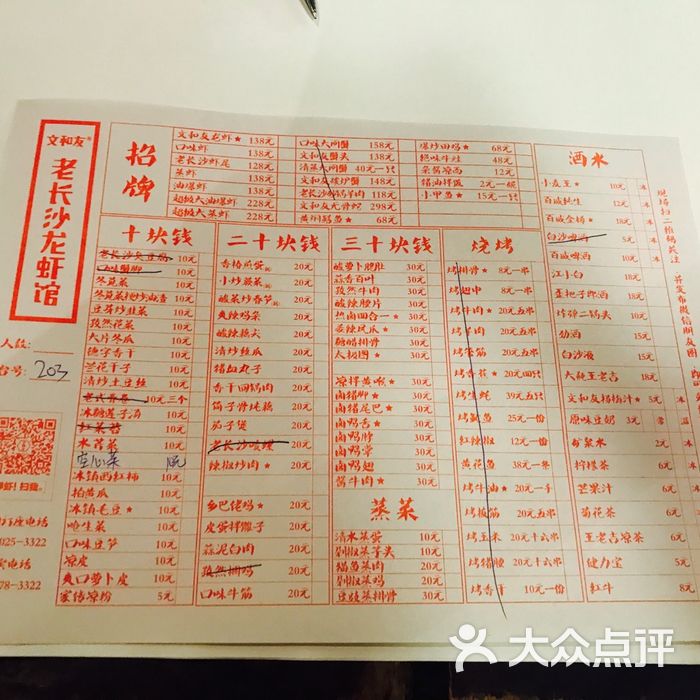 文和友
老长沙龙虾馆
人数:
台号: 203
虾! 扫我!
订座电话
025-3322
078-3322
招牌
文和友龙虾★ 138元
口味虾 138元
老长沙虾尾 138元
蒸虾 138元
油爆虾 138元
超级大油爆虾 228元
超级大蒸虾 228元
口味大闸蟹 158元
文和友蟹头 138元
清蒸大闸蟹 40元一只
文和友楼炉蟹 148元
老长沙锅羊肉 118元
文和友尤骨蛇 298元
黄州鳝鱼★ 68元
爆炒田鸡★ 68元
绝味牛蛙 48元
杂酱凉面 12元
猪油拌饭 2元一碗
小甲鱼★ 15元一只
十块钱
老长沙臭豆腐 10元
口味蟹脚 10元
冬苋菜 10元
冬苋菜梗炒油渣 10元
豆芽炒韭菜 10元
孜然花菜 10元
大片冬瓜 10元
德字香干 10元
兰花干子 10元
清炒土豆丝 10元
老式春卷 10元三个
冰糖莲子汤 10元
红菜苔 10元
水芹菜 10元
空心菜
冰镇西红柿 10元
拍黄瓜 10元
冰镇毛豆★ 10元
呛生菜 10元
口味豆笋 10元
凉皮 10元
爽口萝卜皮 10元
家传凉粉 5元
二十块钱
香椿煎蛋 20元
小炒猴菜 20元
酸菜炒春笋 20元
爽辣鸡杂 20元
酸辣藕尖 20元
清炒丝瓜 20元
猪血丸子 20元
香干回锅肉 20元
筒子骨炖藕 20元
茄子煲 20元
老长沙嗦螺 20元
辣椒炒肉★ 20元
乡巴佬鸡★ 20元
皮蛋拌擂子 20元
蒜泥白肉 20元
孜然捆鸡 20元
口味牛筋 20元
三十块钱
酸萝卜肥肚 30元
蒜香百叶 30元
孜然牛肉 30元
酸辣腰片 30元
热卤四合一★ 30元
姜辣凤爪★ 30元
糖醋排骨 30元
太极图★ 30元
凉拌黄喉★ 30元
卤猪脚★ 30元
卤猪尾巴★ 30元
卤鸭舌★ 30元
卤鸭脖 30元
卤鸭掌 30元
卤鸭翅 30元
酱牛肉★ 30元
蒸菜
清水蒸蛋 10元
剁椒蒸芋头 10元
猫鱼蒸肉 20元
剁椒蒸鸡 20元
豆豉蒸排骨 30元
烧烤
烤排骨★ 8元一串
烤翅中 8元一串
烤牛肉★ 20元五串
烤羊肉 20元五串
烤掌筋 20元五串
烤香花★ 20元四只
烤生蚝 39元五只
烤鱿鱼 25元一份
红辣椒 12元一份
黄花鱼 38元一条
烤牛油★ 20元十串
烤板筋 20元五串
烤玉米 20元十六串
烤猪腰 20元十六串
烤香干 10元一份
酒水
小麦王★ 10元 本
百威纯生 12元 本
百威金樽★ 18元 本
白沙啤酒 5元 本
百威啤酒 10元 本
江小白 18元
歪把子郎酒 18元
炸弹二锅头 10元
劲酒 15元
白沙液 15元
大瓶王老吉 18元
文和友梅梅汁★ 5元
原味豆奶 3元 常温
矿泉水 2元
柠檬茶 6元
芒果汁 6元
菊花茶 6元
王老吉凉茶 6元
健力宝 5元
红牛 8元
现场扫二维码关注
并发布微信朋友圈
大众点评